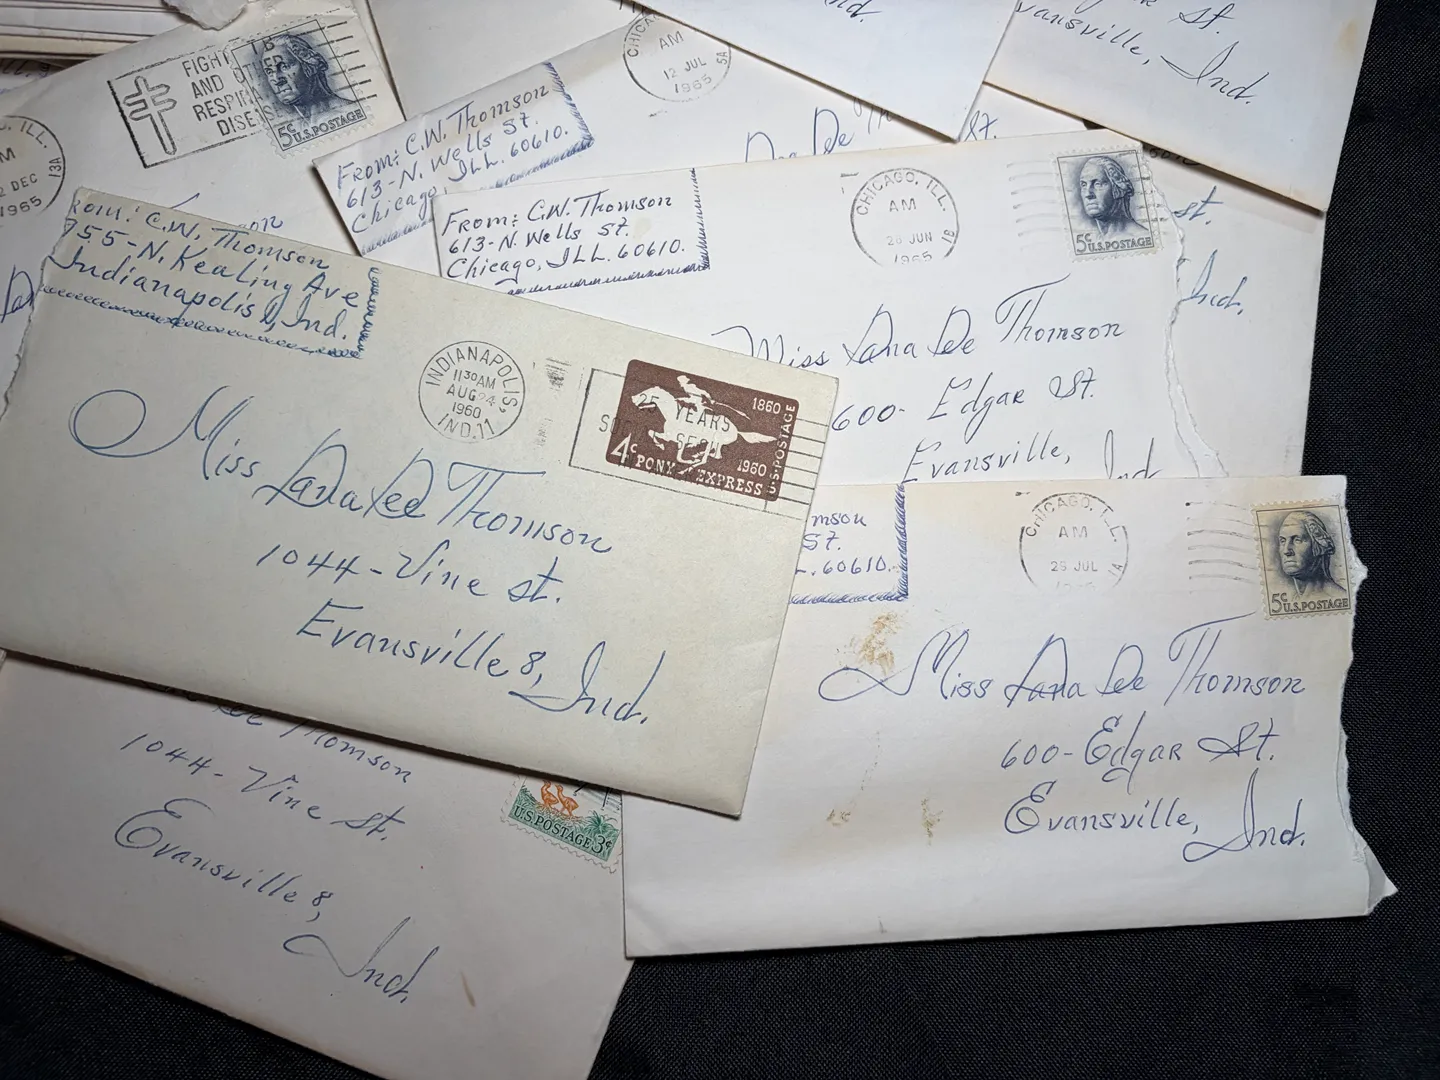 FIGHT
AND
RESPIR
DISE
5¢ U.S. POSTAGE
ILL.
13A
DEC
1965
CHICAGO
AM
12 JUL
1965
5A
From: C.W. Thomson
613-N. Wells St.
Chicago, ILL. 60610.
nd.
St.
vansville, Ind.
From: C.W. Thomson
613-N. Wells St.
Chicago, ILL. 60610.
CHICAGO, ILL.
AM
28 JUN
1965
1B
5¢ U.S. POSTAGE
Miss Lana Lee Thomson
600- Edgar St.
Evansville, Ind
St.
St.
Ind.
rom: C.W. Thomson
755-N. Kealing Ave
Indianapolis 1, Ind.
INDIANAPOLIS,
11 30 AM
AUG 24
1960
IND. 11
25 YEARS
1860
1960
4¢ PONY EXPRESS
U.S. POSTAGE
Miss Lana Lee Thomson
1044-Vine St.
Evansville 8, Ind.
mson
ST.
L. 60610.
CHICAGO, ILL.
AM
29 JUL
1A
5¢ U.S. POSTAGE
Miss Lana Lee Thomson
600-Edgar St.
Evansville, Ind.
Lee Thomson
1044-Vine St.
Evansville 8,
Ind.
U.S. POSTAGE 3¢